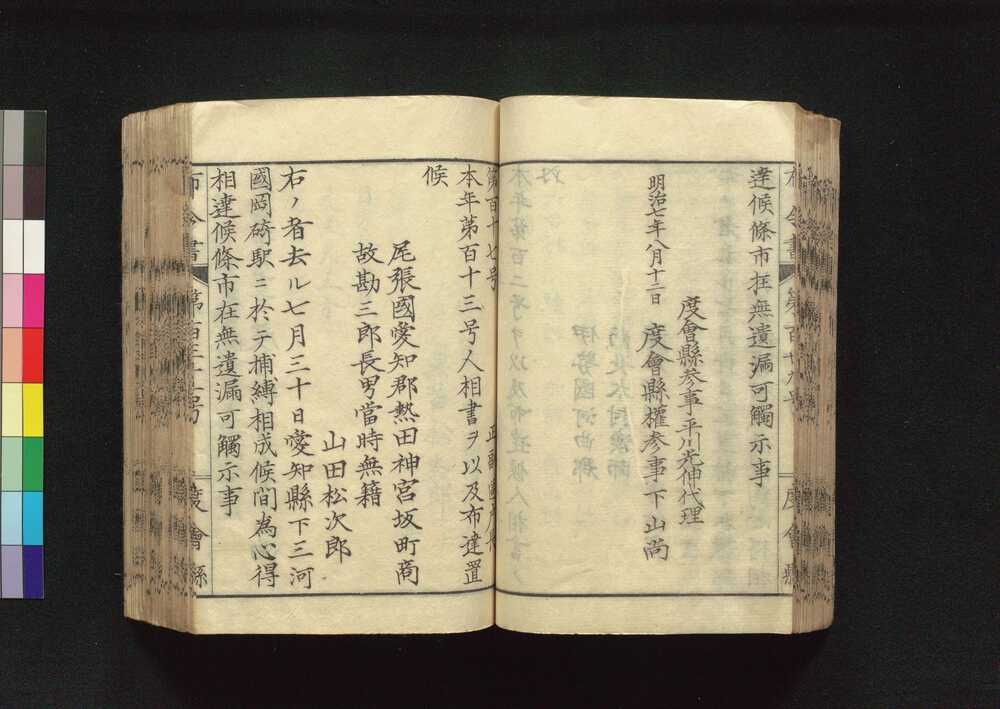 達候條市在無遺漏可觸示事
度會縣参事平川光伸代理
明治七年八月十二日 度會縣權参事下山尚
第百十七号
本年第百十三号人相書ヲ以及布達置
候
尾張國愛知郡熱田神宮坂町商
故勘三郎長男當時無籍
山田松次郎
右ノ者去ル七月三十日愛知縣下三河
國岡碕駅ニ於テ捕縛相成候間為心得
相達候條市在無遺漏可觸示事
布令書 度會縣